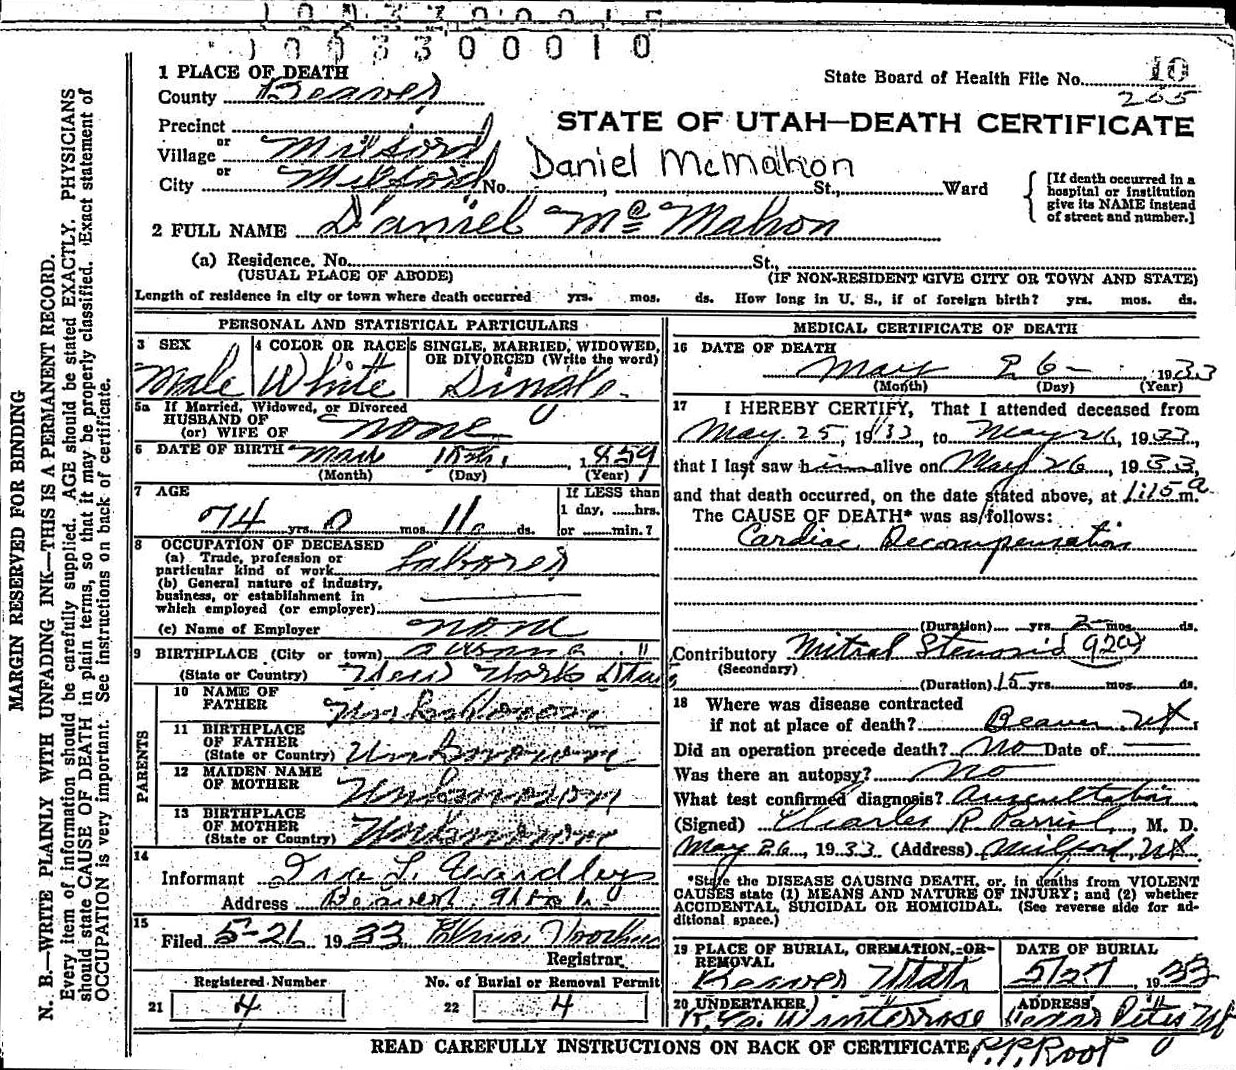 1003300010
1 PLACE OF DEATH
State Board of Health File No. 10
County Beaver
205
Precinct
STATE OF UTAH—DEATH CERTIFICATE
or
Village Milford
or
Daniel McMahon
City Milford No. St., Ward
[If death occurred in a hospital or institution give its NAME instead of street and number.]
2 FULL NAME Daniel McMahon
(a) Residence. No. St.,
(USUAL PLACE OF ABODE) (IF NON-RESIDENT GIVE CITY OR TOWN AND STATE)
Length of residence in city or town where death occurred yrs. mos. ds. How long in U. S., if of foreign birth? yrs. mos. ds.
PERSONAL AND STATISTICAL PARTICULARS
3 SEX
Male
4 COLOR OR RACE
White
5 SINGLE, MARRIED, WIDOWED,
OR DIVORCED (Write the word)
Single
5a If Married, Widowed, or Divorced
HUSBAND OF
(or) WIFE OF none
6 DATE OF BIRTH 15th, 1859
(Month) (Day) (Year)
7 AGE
74 yrs. 0 mos. 11 ds.
If LESS than
1 day, hrs.
or min.?
8 OCCUPATION OF DECEASED
(a) Trade, profession or
particular kind of work Laborer
(b) General nature of industry,
business, or establishment in
which employed (or employer)
(c) Name of Employer none
9 BIRTHPLACE (City or town)
(State or Country) New York State
PARENTS
10 NAME OF
FATHER Unknown
11 BIRTHPLACE
OF FATHER
(State or Country) Unknown
12 MAIDEN NAME
OF MOTHER Unknown
13 BIRTHPLACE
OF MOTHER
(State or Country) Unknown
14
Informant
Address Beaver, Utah
15
Filed 5-26 1933
Registrar
Registered Number No. of Burial or Removal Permit
21 4 22 4
MEDICAL CERTIFICATE OF DEATH
16 DATE OF DEATH
May 26- , 1933
(Month) (Day) (Year)
17 I HEREBY CERTIFY, That I attended deceased from
May 25, 1933, to May 26, 1933,
that I last saw him alive on May 26, 1933,
and that death occurred, on the date stated above, at 1:15 a m.
The CAUSE OF DEATH* was as follows:
Cardiac Decompensation
(Duration) yrs. 2 mos. ds.
Contributory Mitral Stenosis 92a
(Secondary)
(Duration) 15 yrs. mos. ds.
18 Where was disease contracted
if not at place of death? Beaver, Ut
Did an operation precede death? No Date of
Was there an autopsy? No
What test confirmed diagnosis? Auscultation
(Signed) Charles R. Parrish, M. D.
May 26, 1933 (Address) Milford, Ut
*State the DISEASE CAUSING DEATH, or, in deaths from VIOLENT
CAUSES state (1) MEANS AND NATURE OF INJURY; and (2) whether
ACCIDENTAL, SUICIDAL OR HOMICIDAL. (See reverse side for ad-
ditional space.)
19 PLACE OF BURIAL, CREMATION, OR
REMOVAL
Beaver Utah
DATE OF BURIAL
5/27, 1933
20 UNDERTAKER
Winterrose
ADDRESS
Cedar City Ut
READ CAREFULLY INSTRUCTIONS ON BACK OF CERTIFICATE
P.P. Root
MARGIN RESERVED FOR BINDING
N. B.—WRITE PLAINLY WITH UNFADING INK—THIS IS A PERMANENT RECORD.
Every item of information should be carefully supplied. AGE should be stated EXACTLY. PHYSICIANS
should state CAUSE OF DEATH in plain terms, so that it may be properly classified. Exact statement of
OCCUPATION is very important. See instructions on back of certificate.